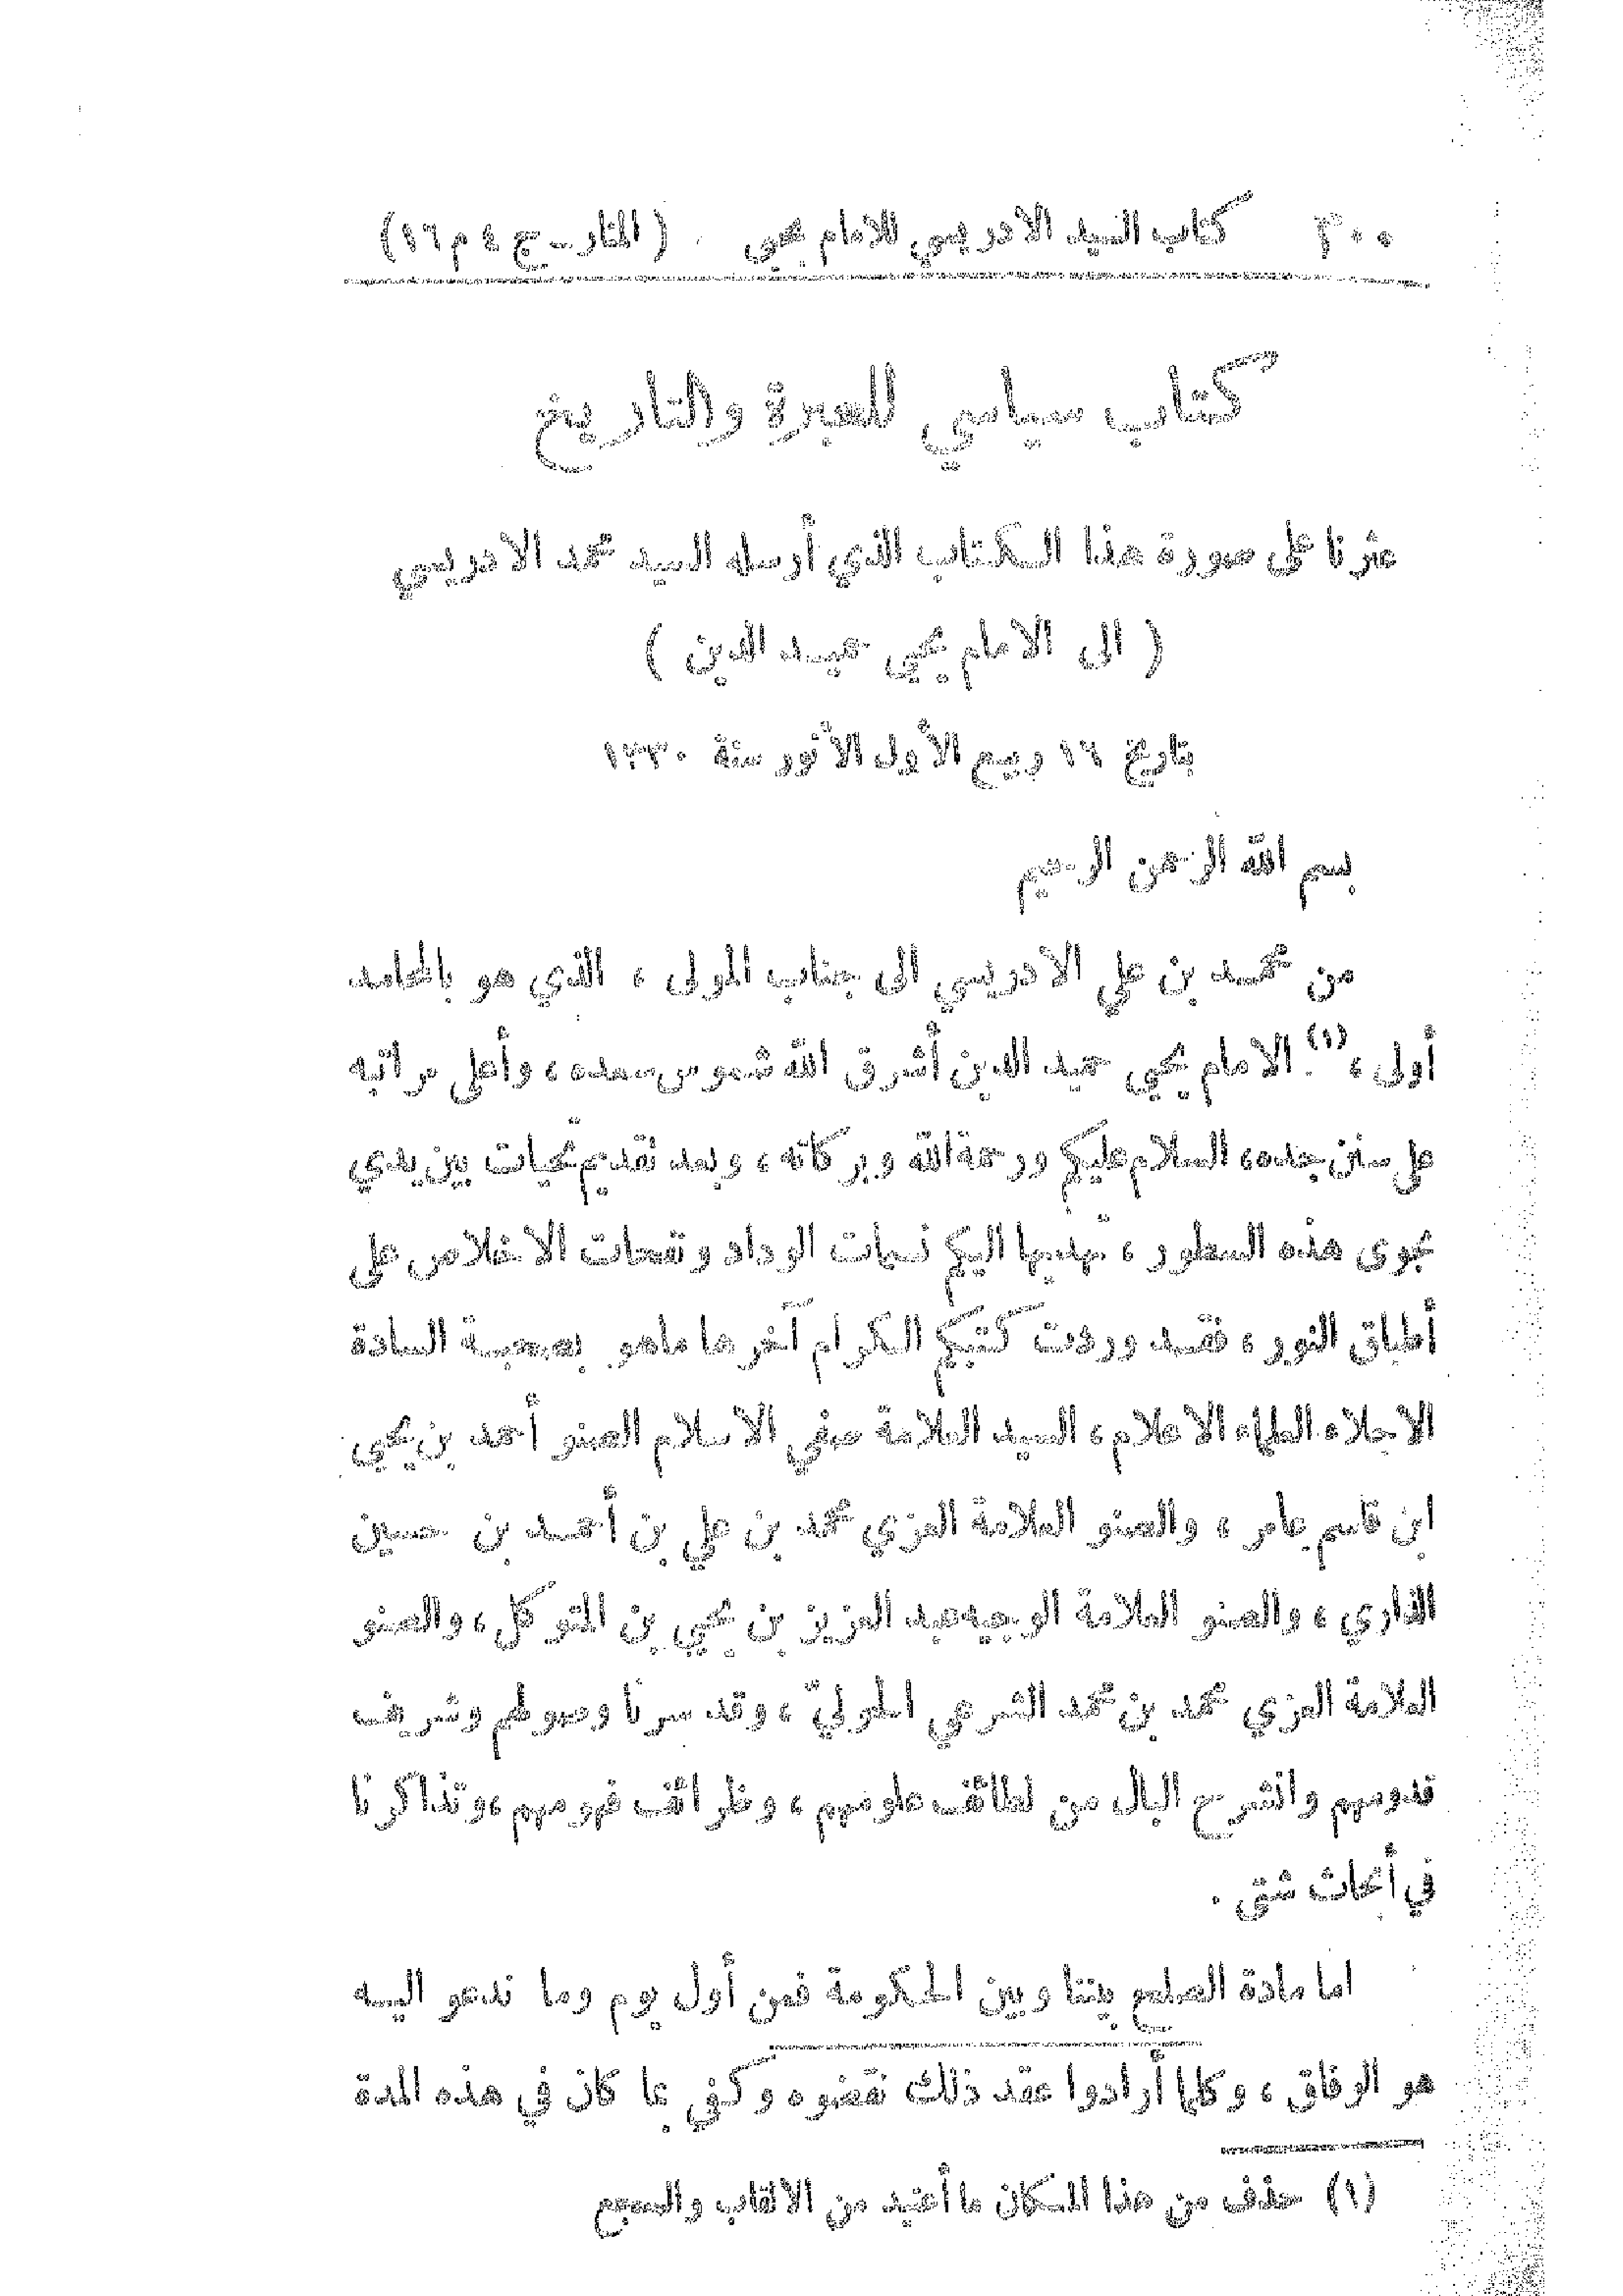 ٣٠٠ كتاب السيد الادريسي للامام يحيى (المنار ـ ج ٤ م ١٦)
كتاب سياسي للعبرة والتاريخ
عثرنا على صورة هذا الكتاب الذي أرسله السيد محمد الادريسي
( الى الامام يحيى حميد الدين )
بتاريخ ١٦ ربيع الأول الأنور سنة ١٣٣٠
بسم الله الرحمن الرحيم
من محمد بن علي الادريسي الى جناب المولى ، الذي هو بالمحامد
أولى ،(١) الامام يحيى حميد الدين أشرق الله شموس سعده ، وأعلى مراتبه
على سنن جده ، السلام عليكم ورحمة الله وبركاته ، وبعد تقديم تحيات بين يدي
نجوى هذه السطور ، تهديها اليكم نسمات الوداد ونفحات الاخلاص على
أطباق النور ، فقد وردت كتبكم الكرام آخرها ماهو بصحبة السادة
الاجلاء العلماء الاعلام ، السيد العلامة صفي الاسلام الصنو أحمد بن يحيى
ابن قاسم عامر ، والصنو العلامة العزي محمد بن علي بن أحمد بن حسين
الذاري ، والصنو العلامة الوجيه عبد العزيز بن يحيى بن المتوكل ، والصنو
العلامة العزي محمد بن محمد الشرعي الحوليّ ، وقد سرنا وصولهم وشريف
قدومهم وانشرح البال من لطائف علومهم ، وظرائف فهومهم ، وتذاكرنا
في أبحاث شتى .
اما مادة الصلح بيننا وبين الحكومة فمن أول يوم وما ندعو اليه
هو الوفاق ، وكلما أرادوا عقد ذلك نقضوه وكفى بما كان في هذه المدة
(١) حذف من هذا المكان ما أعتيد من الالقاب والسجع